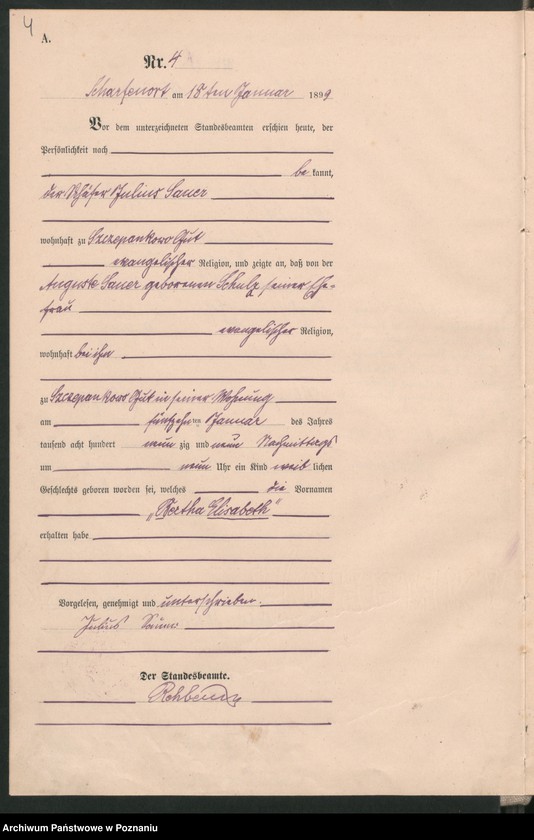 4
A.
Nr. 4
Scharfenort am 18ten Januar 1899
Vor dem unterzeichneten Standesbeamten erschien heute, der
Persönlichkeit nach
be kannt,
der Schäfer Julius Sauer
wohnhaft zu Szczepankowo Gut
evangelischer Religion, und zeigte an, daß von der
Auguste Sauer geborenen Schulz seiner Ehe-
frau
evangelischer Religion,
wohnhaft bei ihm
zu Szczepankowo Gut in seiner Wohnung
am fünfzehnten Januar des Jahres
tausend acht hundert neun zig und neun Nachmittags
um neun Uhr ein Kind weib lichen
Geschlechts geboren worden sei, welches die Vornamen
„Bertha Elisabeth"
erhalten habe
Vorgelesen, genehmigt und unterschrieben.
Julius
Der Standesbeamte.
Archiwum Państwowe w Poznaniu